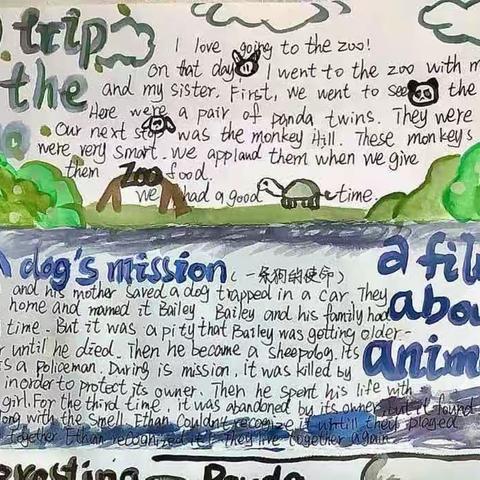 trip
the
I love going to the zoo!
on that day I went to the zoo with m
and my sister. First, we went to see the
Here were a pair of panda twins. They were
Our next stop was the monkey Hill. These monkeys
were very smart. we applaud them when we give
them food.
Zoo
we had a good time.
A dog's mission (一条狗的使命)
a fil
abou
anim
and his mother saved a dog trapped in a car. They
home and named it Bailey. Bailey and his family had
time. But it was a pity that Bailey was getting older
until he died. Then he became a sheepdog. Its
s a policeman. During is mission, It was killed by
in order to protect its owner. Then he spent his life with
girl. For the third time, it was abandoned by its owner, but it found
long with the smell Ethan couldn't recognize it until they played
together Ethan recognized it! They live together again
eresting
Panda